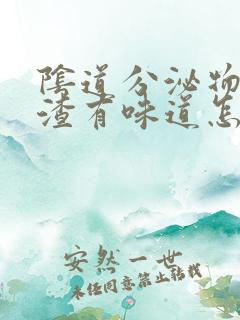 陰道分泌物
渣有味道怎
安然一世
未经同意禁止转载